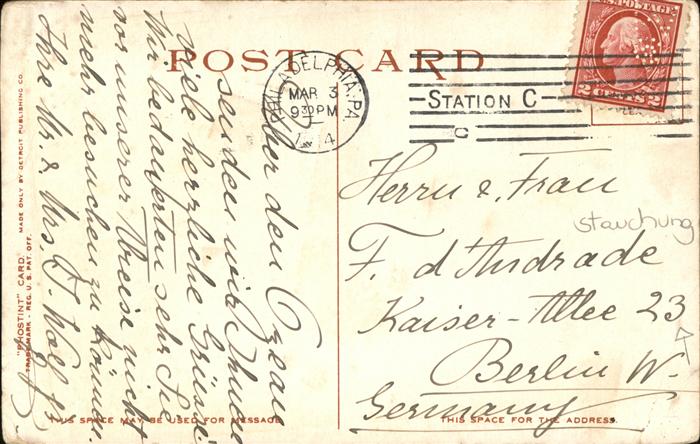 POST CARD
U.S. POSTAGE
2 CENTS 2
PHILADELPHIA, PA.
MAR 3
9 30 PM
STATION C
C
Über den Ozean
senden wir Ihnen
viele herzliche Grüsse
Wir bedauerten sehr Sie
vor unserer Abreise nicht
mehr besuchen zu können.
Ihre Mr. & Mrs.
Herrn & Frau
stauchung
F. d'Andrade
Kaiser-Allee 23
Berlin W.
Germany
"PHOSTINT" CARD. MADE ONLY BY DETROIT PUBLISHING CO.
TRADEMARK - REG. U.S. PAT. OFF.
THIS SPACE MAY BE USED FOR MESSAGE
THIS SPACE FOR THE ADDRESS.